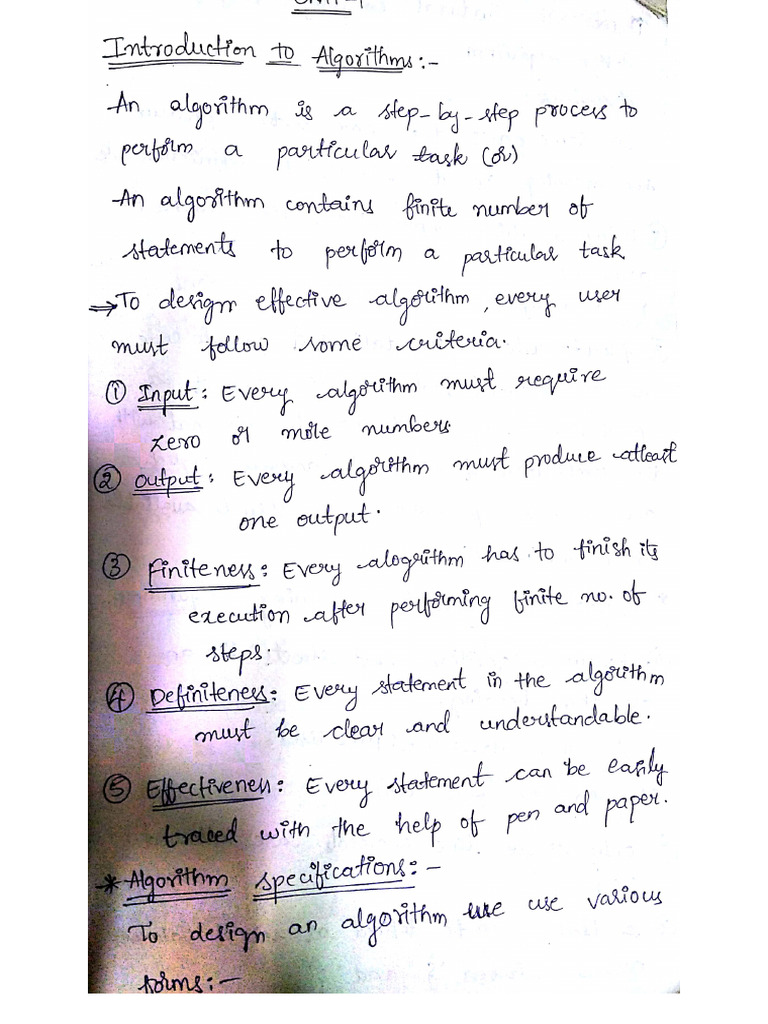 UNIT-1
Introduction to Algorithms:-
An algorithm is a step-by-step process to
perform a particular task (or)
An algorithm contains finite number of
statements to perform a particular task
⇒ To design effective algorithm, every user
must follow some criteria.
① Input: Every algorithm must require
zero or more numbers.
② Output: Every algorithm must produce atleast
one output.
③ Finiteness: Every alogrithm has to finish its
execution after performing finite no. of
steps.
④ Definiteness: Every statement in the algorithm
must be clear and understandable.
⑤ Effectiveness: Every statement can be easily
traced with the help of pen and paper.
* Algorithm specifications:-
To design an algorithm use use various
forms:-